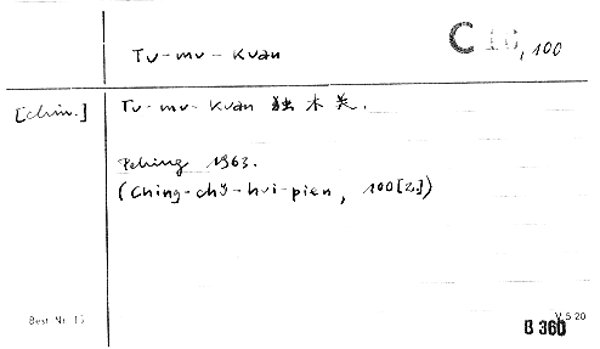 Tu-mu-Kuan
C 16, 100
[chin.]
Tu-mu-Kuan 独木关.
Peking 1963.
(Ching-chü-hui-pien, 100[2.])
Best Nr. 15
V 5 20
B 360